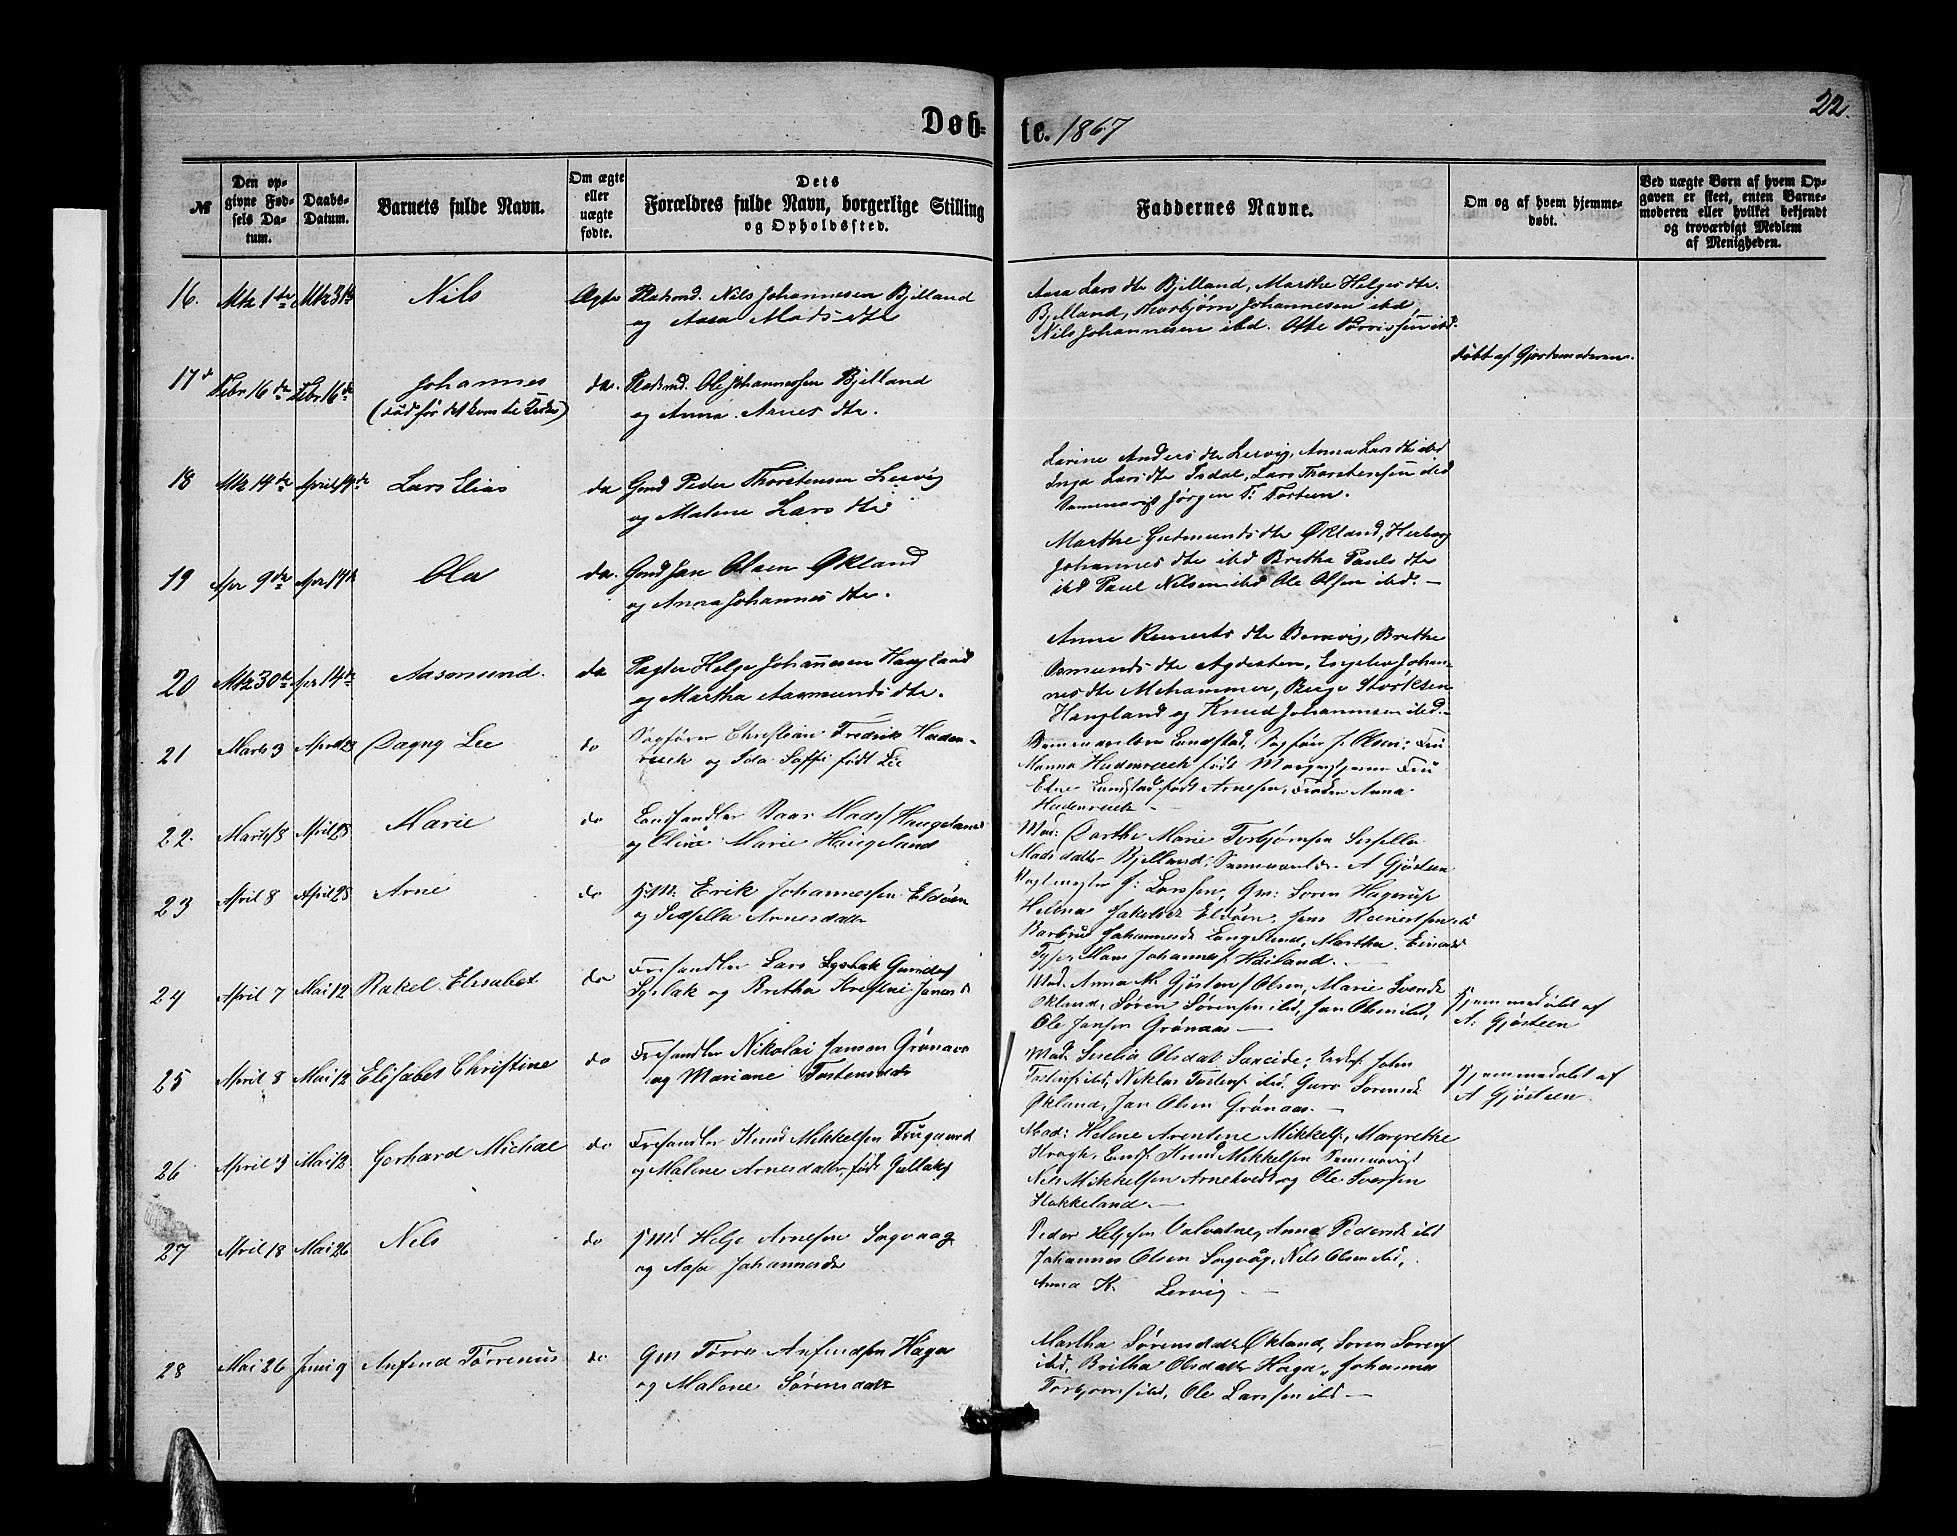 22.
Døb- te. 1867
№ | Den opgivne Fødsels Datum. | Daabs-Datum. | Barnets fulde Navn. | Om ægte eller uægte fødte. | Dets Forældres fulde Navn, borgerlige Stilling og Opholdssted. | Faddernes Navne. | Om og af hvem hjemmedøbt. | Ved uægte Børn af hvem Opgaven er skeet, enten Barnemoderen eller hvilket bekjendt og troværdigt Medlem af Menigheden.
16. Mtz 1de Mtz 31 Nils Ægte Pladsmd. Nils Johannesen Bjelland
og Aasa Mads dtr
Aasa Lars dtr Bjelland, Marthe Helges dtr.
Bjelland, Thorbjørn Johannesen ibd,
Nils Johannesen ibd. Otte Torrissen ibd.
17 Febr 16de Febr 16de Johannes
(død før det kom til Kirke)
do. Pladsmd. Ole Johannessen Bjelland
og Anna Arnes dtr.
døbt af Gjordemoderen.
18 Mtz 14de April 14de Lars Elias do Gmd Peder Thorstensen Lervig
og Malene Lars dtr
Larine Anders dtr Lervig, Anna Lars dtr ibd
Inga Lars dtr Isdal, Lars Thorstensen ibd
Jørgen T. Tosteen.
19 Apr 9de Apr 14de Ola do. Gmd Jan Olsen Økland
og Anna Johannes dtr.
Marthe Gudmunds dtr Økland, Herborg
Johannes dtr ibd Bretha Pauls dtr
ibd Paul Nilsen ibd Ole Olsen ibd. —
20 Mtz 30te Apr 14de Aasmund. do Pagter Helge Johannesen Haugland
og Martha Aasmunds dtr.
Anne Reinerts dtr Børrevig, Brethe
Osmunds dtr Agdesten, Engelen Johan-
nes dtr Mehammer, Berge Størksen
Haugland og Knud Johannesen ibd.
21 Marts 3 April 23 Dagny Lie do Sagfører Christian Fredrik Haden-
reich og Ida Saffi født Lie
Lundstad, Sagfør J. Olsen; Fru
Manna Hadenreich født Morgenstjerne Fru
Eline Lundstad født Arnesen, Frøken Anna
Hadenreich —
22. Marts 8 April 28 Marie do Landhandler Baar Mads Haugeland
og Eline Marie Haugeland
Mad: Dorthe Marie Torbjørnsen Sissella
Madsdatter Bjelland, A Gjøsteen
J. Larssen, Gm: Søren Hagerup
23 April 8 April 28 Arne do Hmd Erik Johannessen Eldøen
og Sissella Arnesdatter
Helena Jakobsd Eldøen, Jens Reinertsen ibd
Barbru Johannesd Langeland, Martha Einarsd
Hans Johannes Høiland. —
24 April 7 Mai 12 Rakel Elisabet do Frihandler Lars Lyslak
Lyslak og Bretha Kristine Jansd
Mad. Anna M. Gjøsten Olsen, Marie Svendsd
Økland, Søren Sørensen ibd, Jan Olsen ibd,
Ole Jansen Grønaas —
Hjemmedøbt af
A. Gjøsteen
25 April 8 Mai 12 Elisabet Christine do Frihandler Nikolai Jansen Grønaas
og Mariane Tostensdatr
Mad. Serelia Olsdat John
Tostens ibd, Niklas Tostens ibd, Guro Sørensd
Økland, Jan Olsen Grønaas. —
Hjemmedøbt af
A Gjøsteen.
26 April 3 Mai 12 Gerhard Michal do Frihandler Knud Mikkelsen Trugaard
og Malene Arnesdatter født
Mad: Helene Arentine Mikkels, Margrethe
Krogh, Knud Mikkelsen
Nils Mikkelsen Arnetvedt og Ole Sversen
Stokkeland —
27 April 18 Mai 26 Nels do Hmd Helge Arnesen Sagvaag
og Aasa Johannesdr
Peder Helgesen Valvatne, Anna Pedersd ibd
Johannes Olsen Sagvåg, Nils Olsen ibd,
Anna K. Lervig —
28 Mai 26 Juni 9 Anfind Tørrenius do Gm Tørre Anfindsen Haga
og Malene Sørensdatr
Martha Sørensdatr Økland, Søren Sørens
ibd, Britha Olsdatter Haga, Johannes
Torbjørns ibd, Ole Larssen ibd —